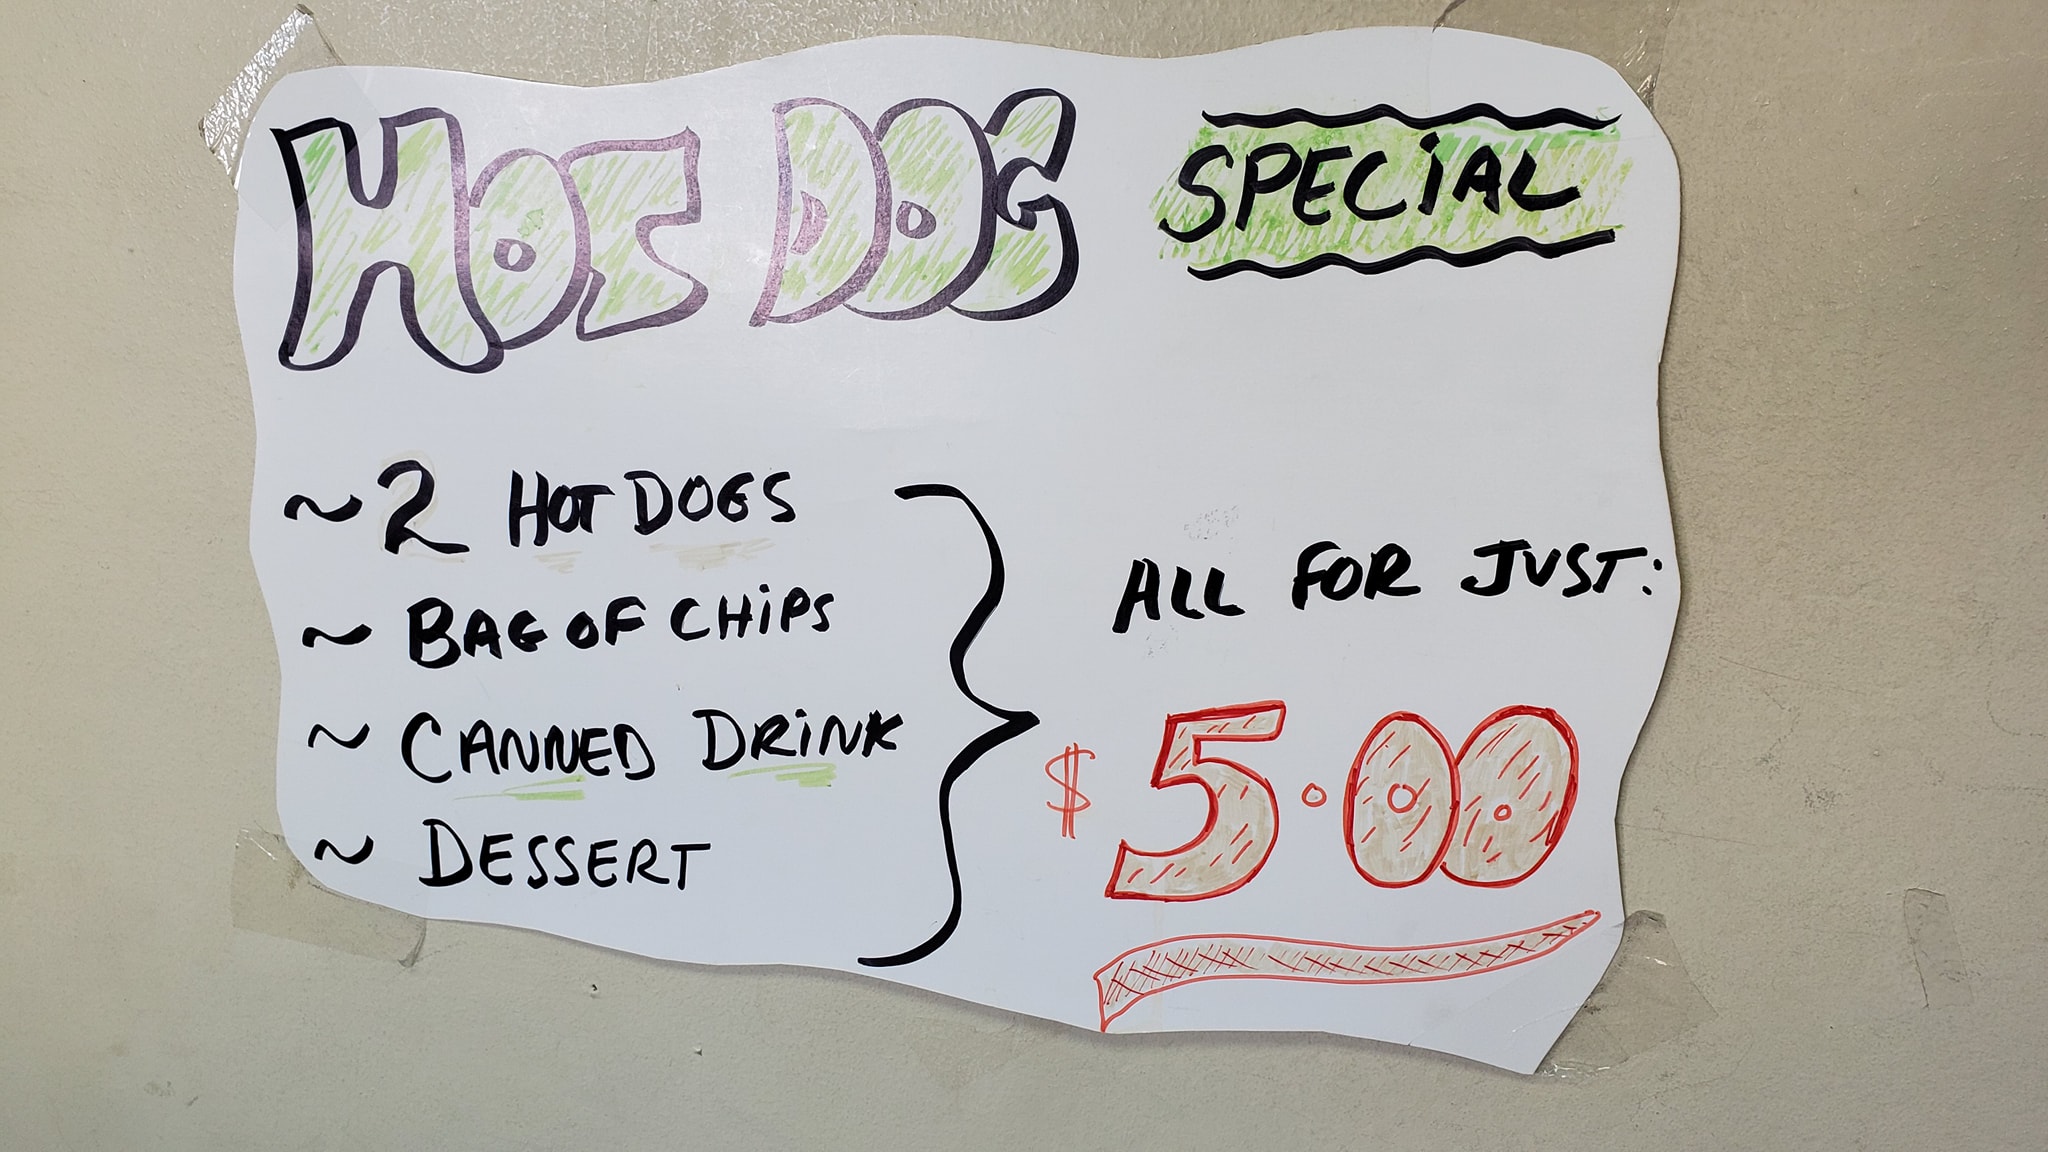 HOT DOG SPECIAL
~ 2 HOT DOGS
~ BAG OF CHiPS
~ CANNED DRiNK
~ DESSERT
ALL FOR JUST:
$5.00